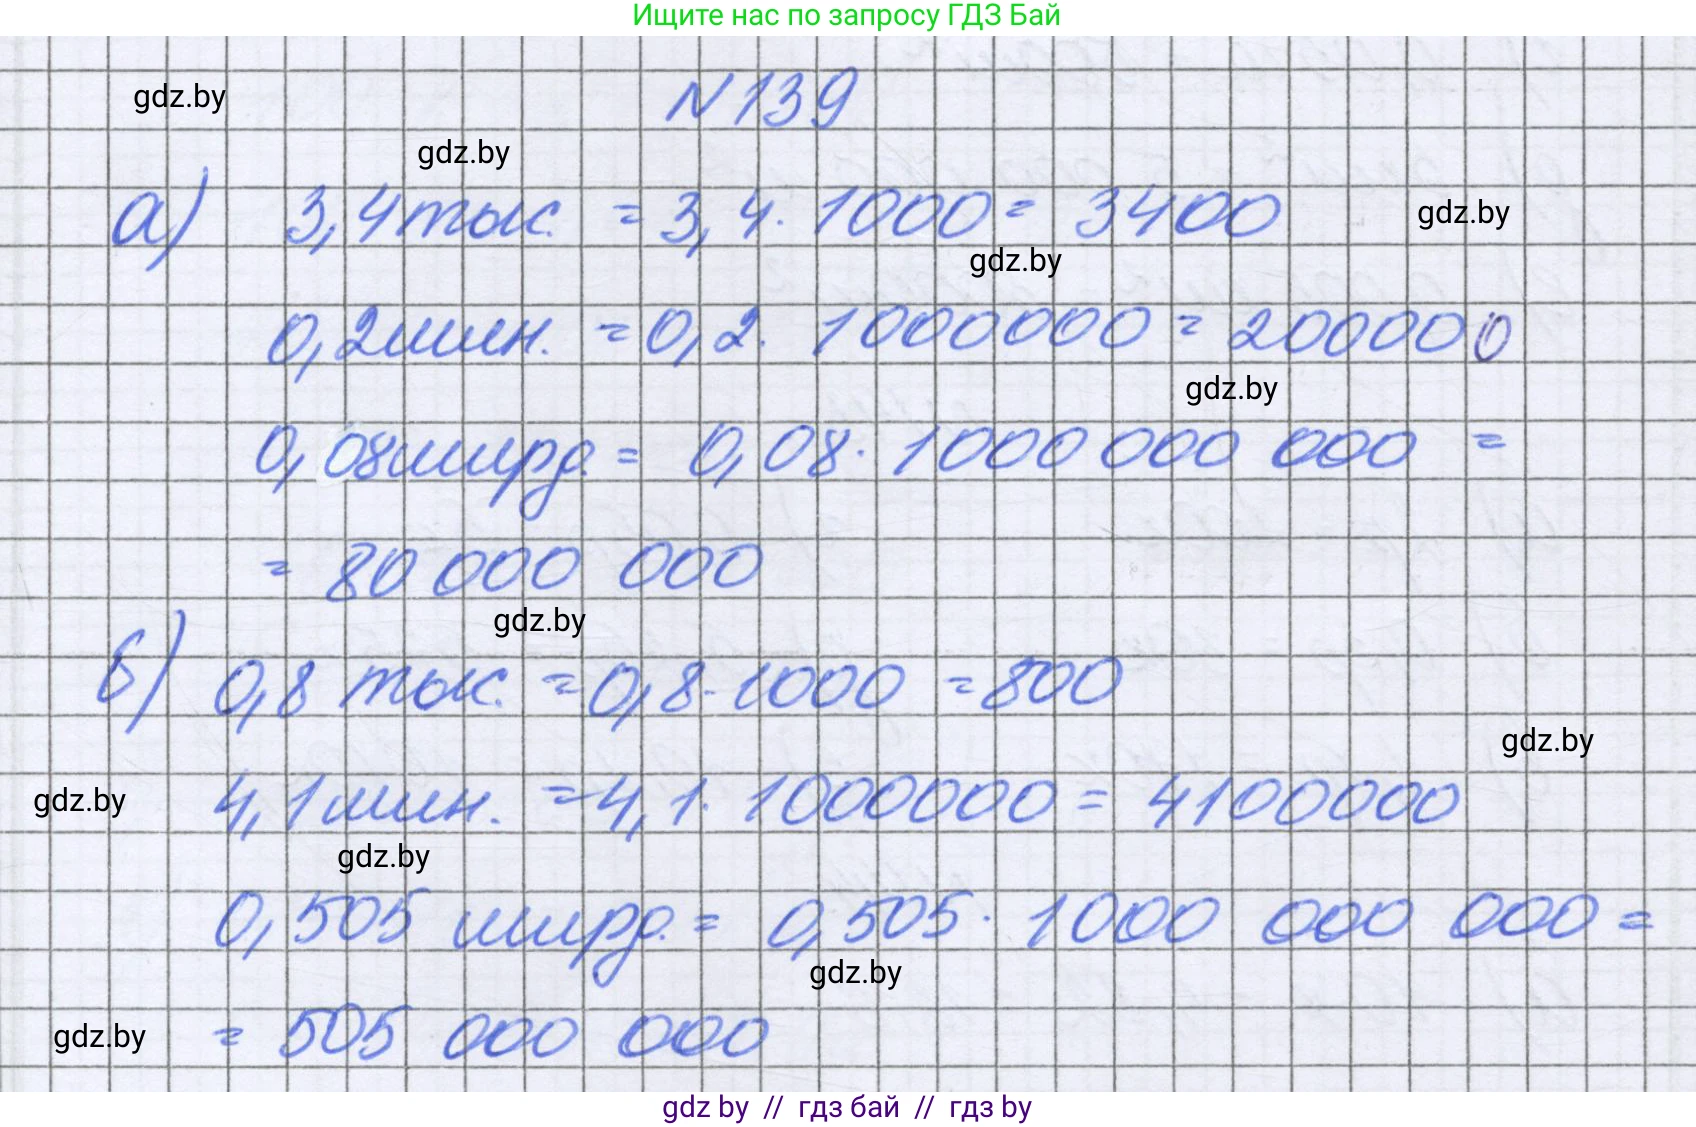 Ищите нас по запросу ГДЗ Бай
N139
gdz.by
gdz.by
а) 3,4 тыс. = 3,4 · 1000 = 3400
gdz.by
gdz.by
0,2 млн. = 0,2 · 1000000 = 200000
gdz.by
0,08 млрд. = 0,08 · 1000 000 000 =
= 80 000 000
gdz.by
б) 0,8 тыс. = 0,8 · 1000 = 800
gdz.by
4,1 млн. = 4,1 · 1000000 = 4100000
gdz.by
gdz.by
0,505 млрд. = 0,505 · 1000 000 000 =
gdz.by
= 505 000 000
gdz.by
gdz by // гдз бай // гдз by